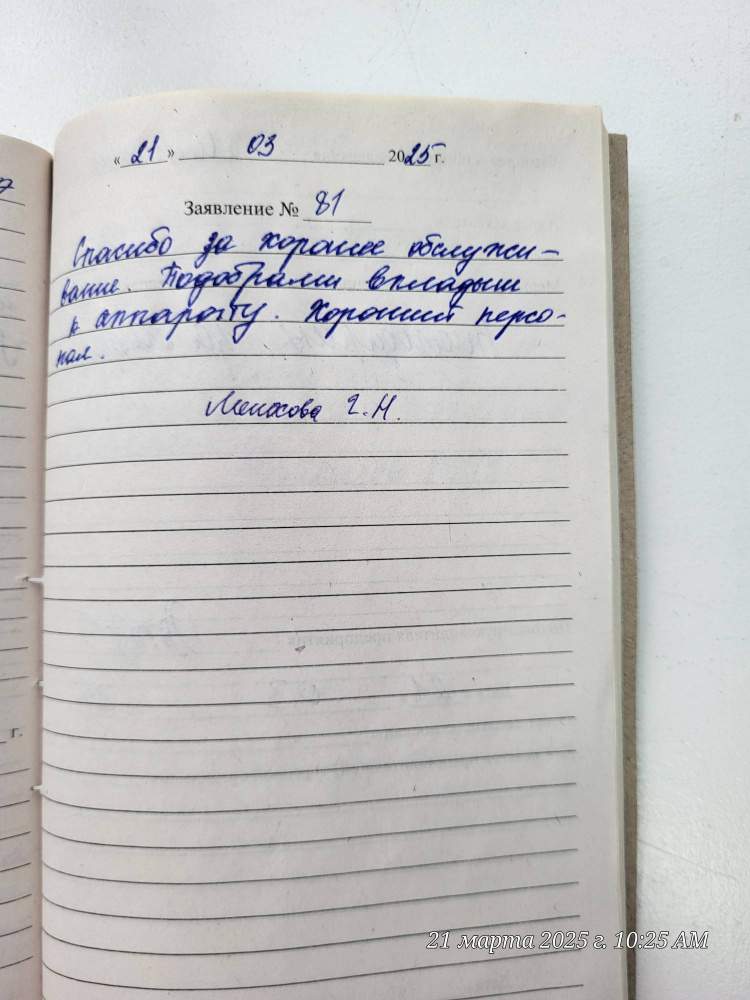 « 21 » 03 2025 г.
Заявление № 81
Спасибо за хорошее обслужи-
вание. Подобрали вкладыш
к аппарату. Хороший персо-
нал.
Г.Н.
г.
21 марта 2025 г. 10:25 AM